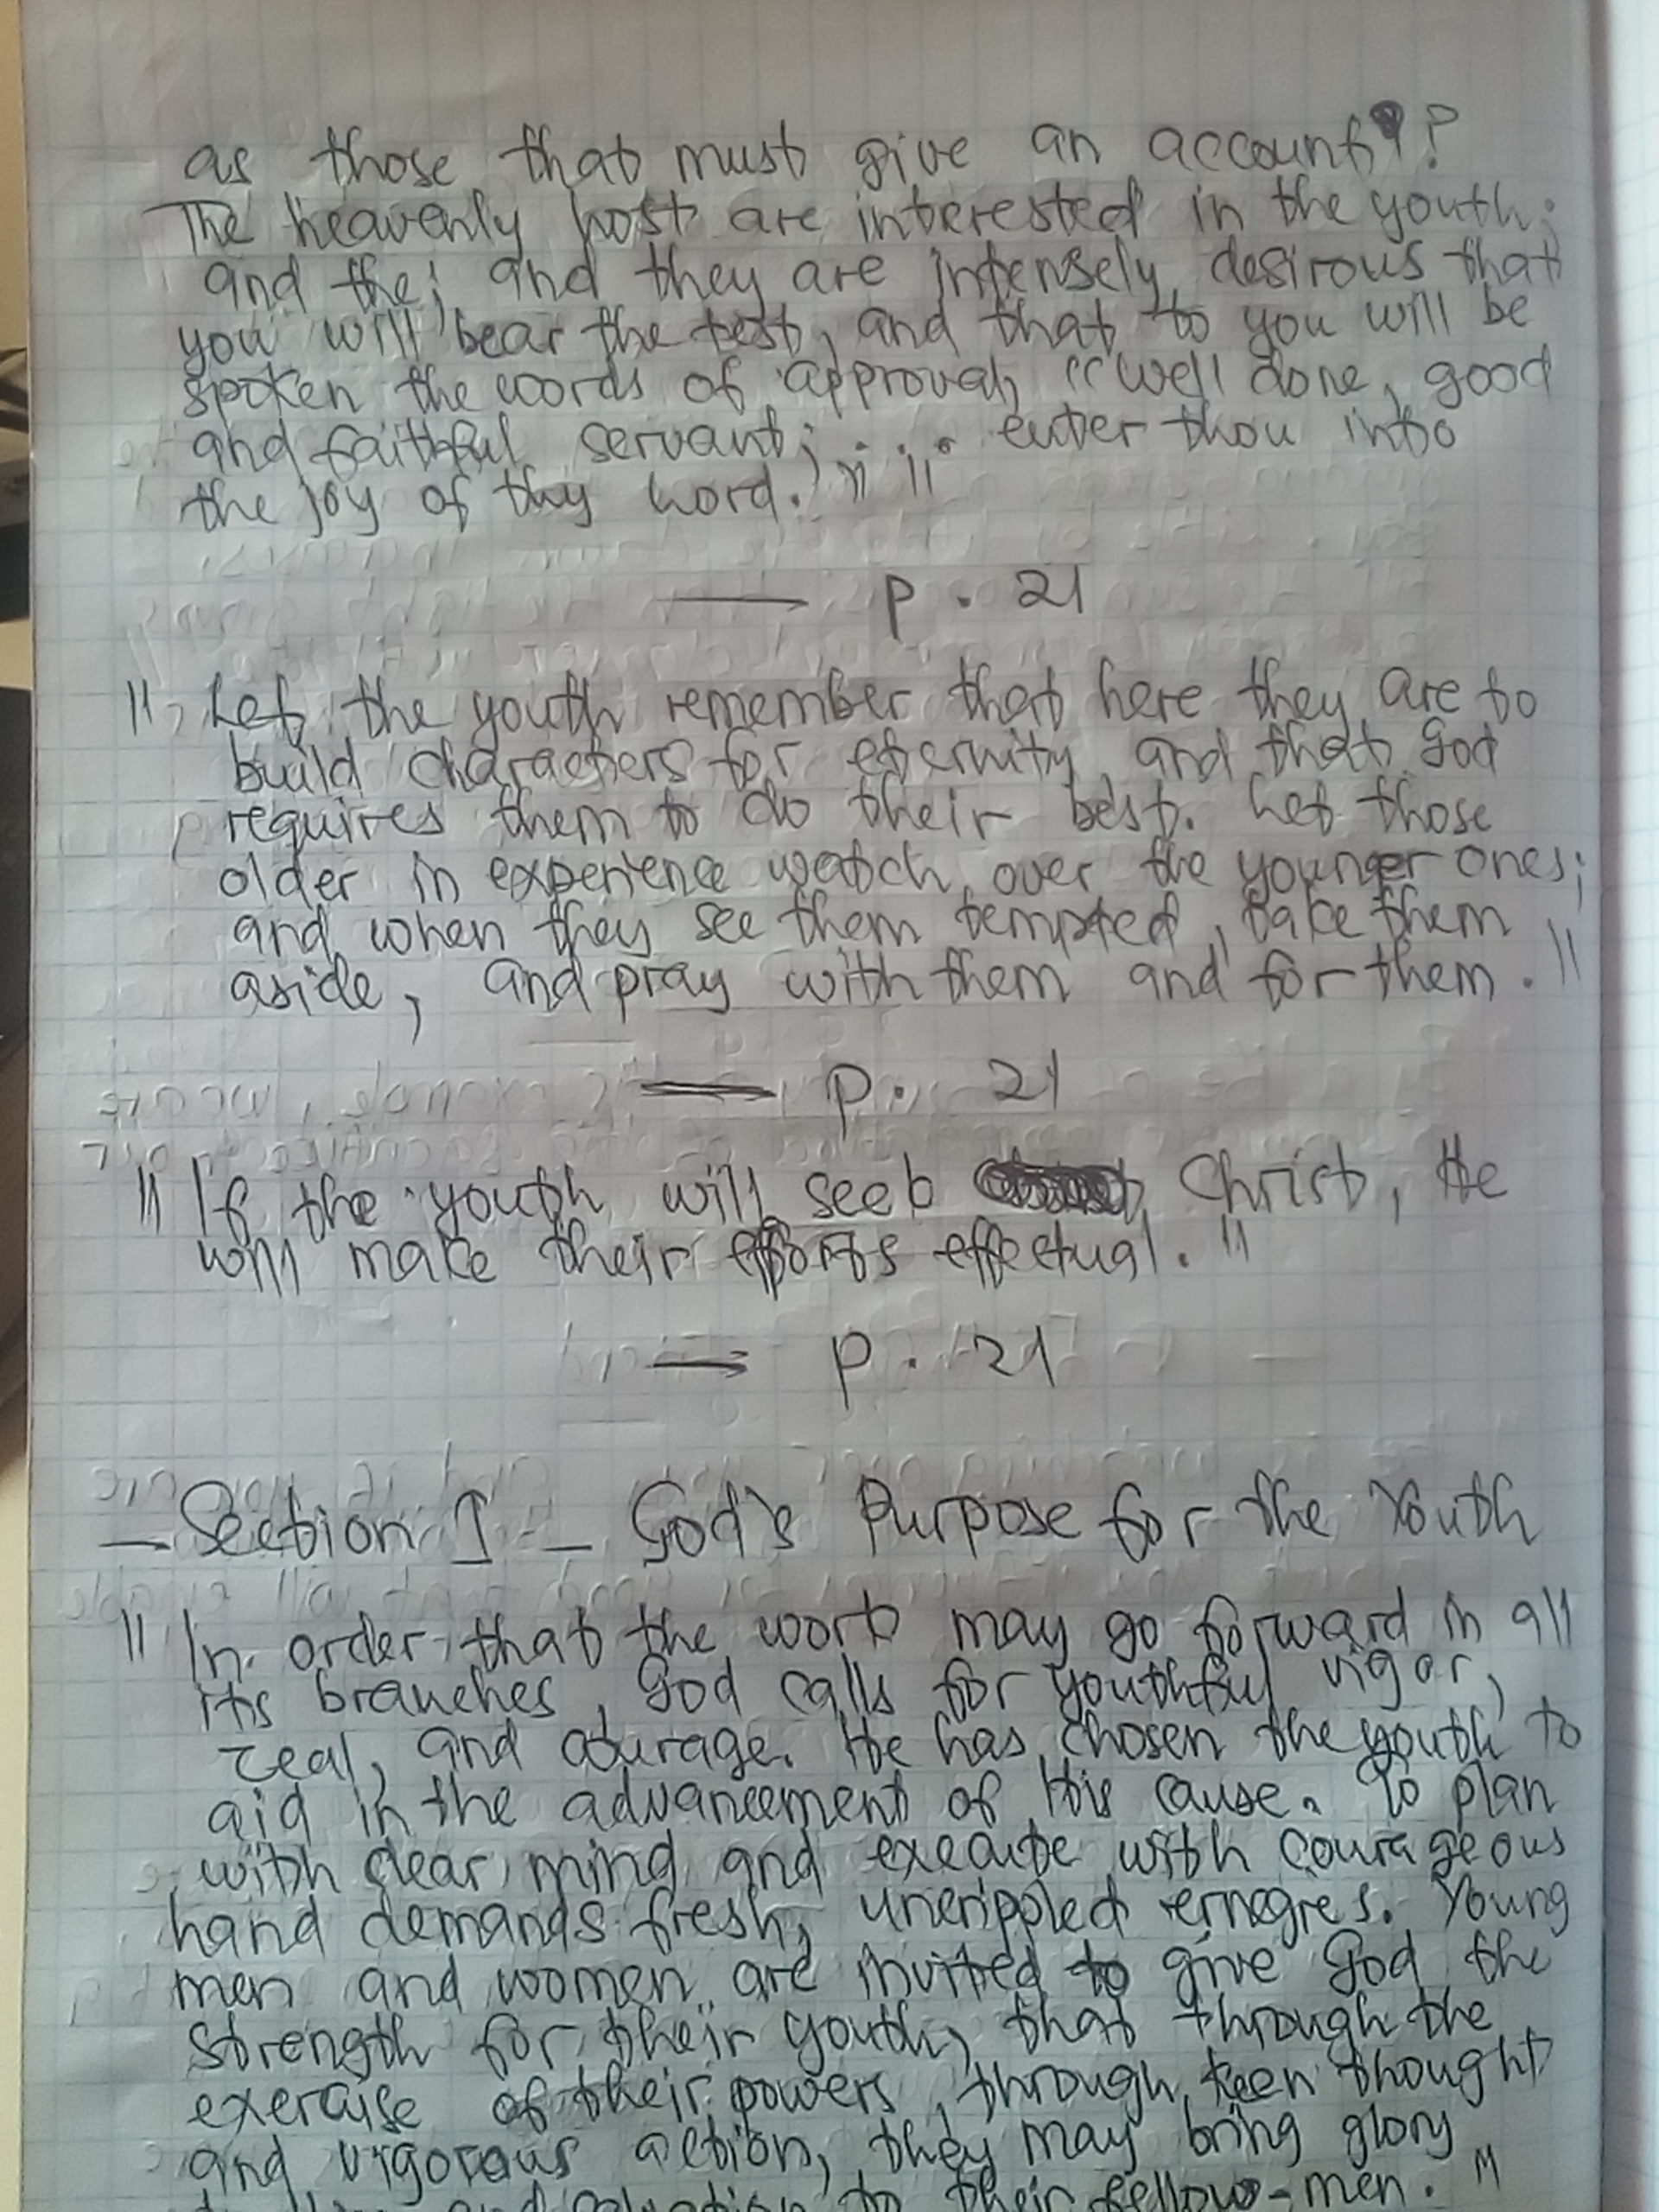 as those that must give an account?
The heavenly host are interested in the youth;
and the; and they are intensely desirous that
you will bear the test, and that to you will be
spoken the words of approval, "well done, good
and faithful servant; ... enter thou into
the joy of thy Lord.' " "
— p. 21
" Let the youth remember that here they are to
build characters for eternity, and that God
requires them to do their best. Let those
older in experience watch over the younger ones;
and when they see them tempted, take them
aside, and pray with them and for them. "
— p. 21
" If the youth will seek Christ, He
will make their efforts effectual. "
— p. 21
— Section I — God's Purpose for the Youth
" In order that the work may go forward in all
its branches, God calls for youthful vigor,
zeal, and courage. He has chosen the youth to
aid in the advancement of His cause. To plan
with clear mind and execute with courageous
hand demands fresh, uncrippled ernegres. Young
men and women are invited to give God the
strength for their youth, that through the
exercise of their powers, through keen thought
and vigorous action, they may bring glory
to their fellow-men. "